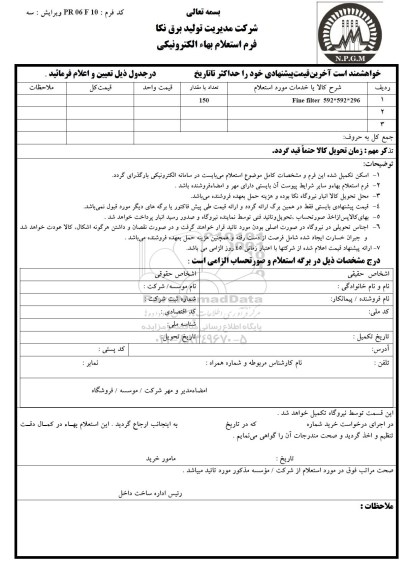 بسمه تعالی
کد فرم : PR 06 F 10 ویرایش : سه
شرکت مدیریت تولید برق نکا
فرم استعلام بهاء الکترونیکی
N.P.G.M
خواهشمند است آخرین قیمت پیشنهادی خود را حداکثر تا تاریخ درجدول ذیل تعیین و اعلام فرمائید .
ردیف شرح کالا یا خدمات مورد استعلام تعداد یا مقدار قیمت واحد قیمت کل ملاحظات
۱ Fine filter 592*592*296 150
۲
۳
جمع کل به حروف:
تذکر مهم : زمان تحویل کالا حتماً قید گردد.
توضیحات:
۱- اسکن تکمیل شده این فرم و مشخصات کامل موضوع استعلام می‌بایست در سامانه الکترونیکی بارگذاری گردد.
۲- فرم استعلام بهاء و سایر شرایط پیوست آن بایستی دارای مهر و امضاء فروشنده باشد .
۳- محل تحویل کالا انبار نیروگاه نکا بوده و هزینه حمل بعهده فروشنده می‌باشد.
۴- قیمت پیشنهادی بایستی فقط در همین برگ ارائه گردد و ارائه قیمت طی پیش فاکتور یا برگه های دیگر مورد قبول نمی‌باشد.
۵- بهای کالا پس از اخذ صورتحساب ،تحویل و تائید فنی توسط نماینده نیروگاه و صدور رسید انبار پرداخت خواهد شد .
۶- اجناس تحویلی در نیروگاه در صورت اصلی بودن مورد تائید قرار خواهند گرفت و در صورت نقصان و داشتن هرگونه اشکال، کالا عودت خواهد شد
و جبران خسارت ایجاد شده شامل فرصت ازدست رفته و همچنین هزینه حمل بعهده فروشنده می‌باشد .
۷- ارائه پیشنهاد قیمت اعلام شده از شرکتها با اعتبار زمانی ۴۵ روز الزامی می باشد.
درج مشخصات ذیل در برگه استعلام و صورتحساب الزامی است :
اشخاص حقیقی اشخاص حقوقی
نام و نام خانوادگی : نام موسسه/ شرکت :
نام فروشنده / پیمانکار: شماره ثبت شرکت :
کد ملی: کد اقتصادی :
شناسه ملی :
تاریخ تکمیل : تاریخ تحویل:
آدرس: کد پستی :
تلفن : نام کارشناس مربوطه و شماره همراه : نمابر :
امضاء مدیر و مهر شرکت / موسسه / فروشگاه
این قسمت توسط نیروگاه تکمیل خواهد شد .
در اجرای درخواست خرید شماره که در تاریخ به اینجانب ارجاع گردید . این استعلام بهاء در کمال دقت
تنظیم و اخذ گردید و صحت مندرجات آن را گواهی می‌نمایم .
تاریخ : مامور خرید
صحت مراتب فوق در مورد استعلام از شرکت / مؤسسه مذکور مورد تائید میباشد .
رئیس اداره ساخت داخل
ملاحظات :